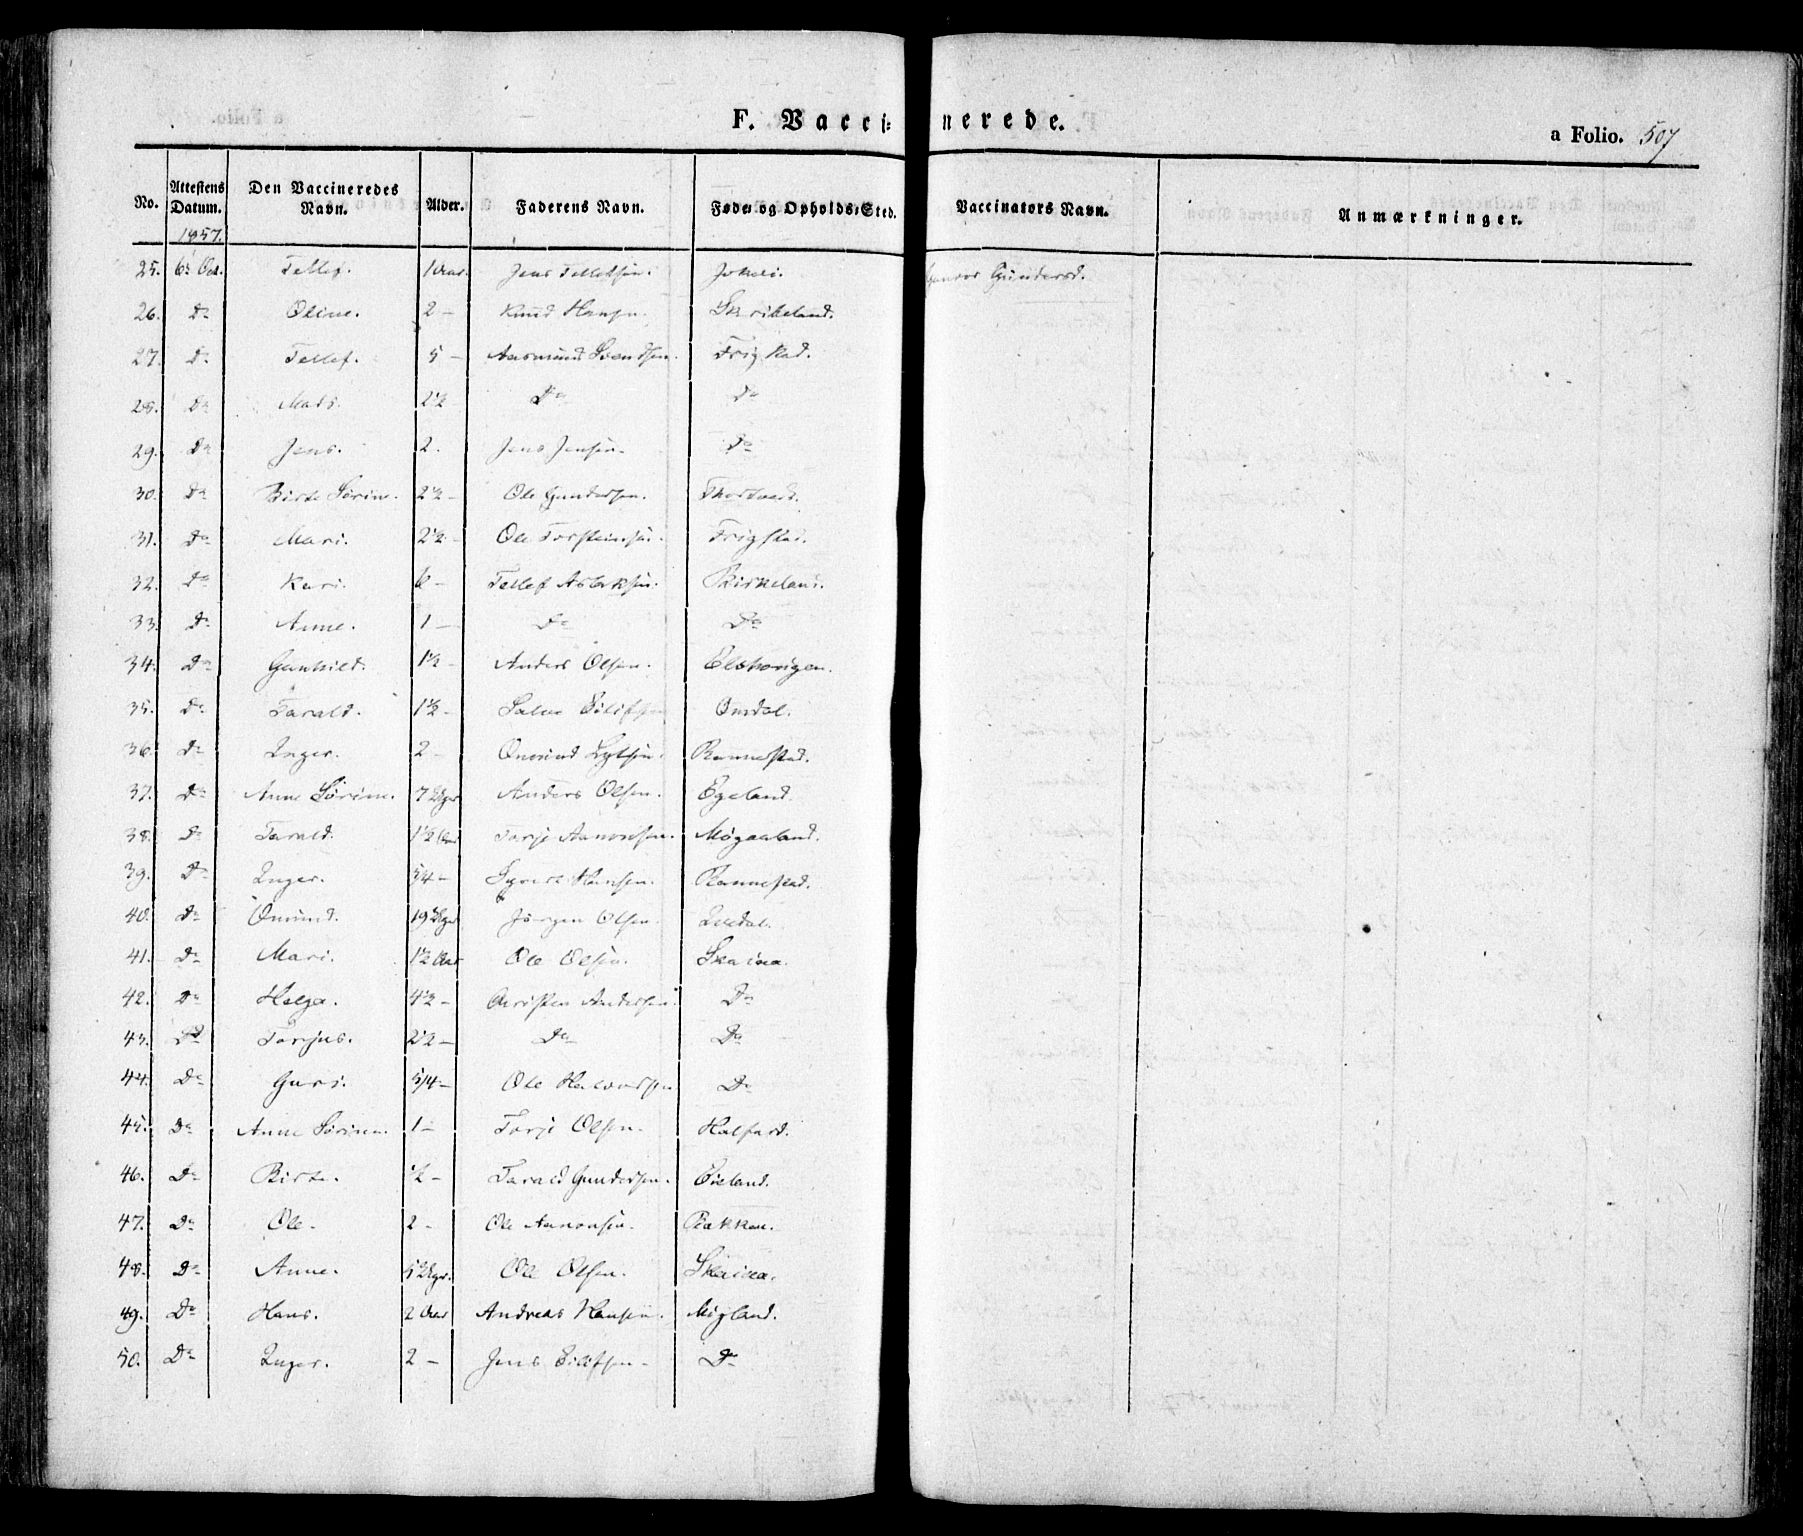 F. Vaccinerede.
a Folio. 507
No. Attestens Datum. Den Vaccineredes Navn. Alder. Faderens Navn. Føde- og Opholds-Sted. Vaccinators Navn. Anmærkninger.
1857.
25. 6' Oct. Tellef. 1 Aar. Jens Tellefsen. Gunders.
26. Do Oline. 2 — Knud Hansen. Skrikeland.
27. Do Tellef. 5 — Aasmund Svendsen. Frigstad.
28. Do Mads. 2½ Do Do
29. Do Jens. 2. Jens Jensen. Do
30. Do Birte Sørine. 2½ — Ole Gundersen. Thortvedt.
31. Do Mari. 2½ — Ole Torsteinsen. Frigstad.
32. Do Kari. 6 — Tellef Aslaksen. Birkeland.
33. Do Anne. 1 — Do Do
34. Do Gunhild. 1½ — Anders Olsen.
35. Do Tarald. 1½ — Salve Eilifsen Omdal.
36. Do Inger. 2 — Omund Rannestad.
37. Do Anne Sørine. 7 Uger Anders Olsen. Egeland.
38. Do Tarald. 1½ Aar Torje Aanonsen. Møgaaland.
39. Do Inger. 5/4 — Syvert Hansen. Rannestad.
40. Do Omund. 19 Uger Jørgen Olsen.
41. Do Mari. 1½ Aar Ole Olsen.
42. Do Helga. 4½ — Christen Andersen. Do
43. Do Torjus. 2½ — Do Do
44. Do Guri. 5/4 — Ole Halvorsen Do
45. Do Anne Sørine. 1 — Torje Olsen.
46. Do Birte. ½ — Tarald Gundersen. Øieland.
47. Do Ole. 2 — Ole Aanonsen. Bakken.
48. Do Anne. Uger. Ole Olsen.
49. Do Hans. 2 Aar Andreas Hansen. Møgland.
50. Do Inger. 2 — Jens Eilifsen — Do